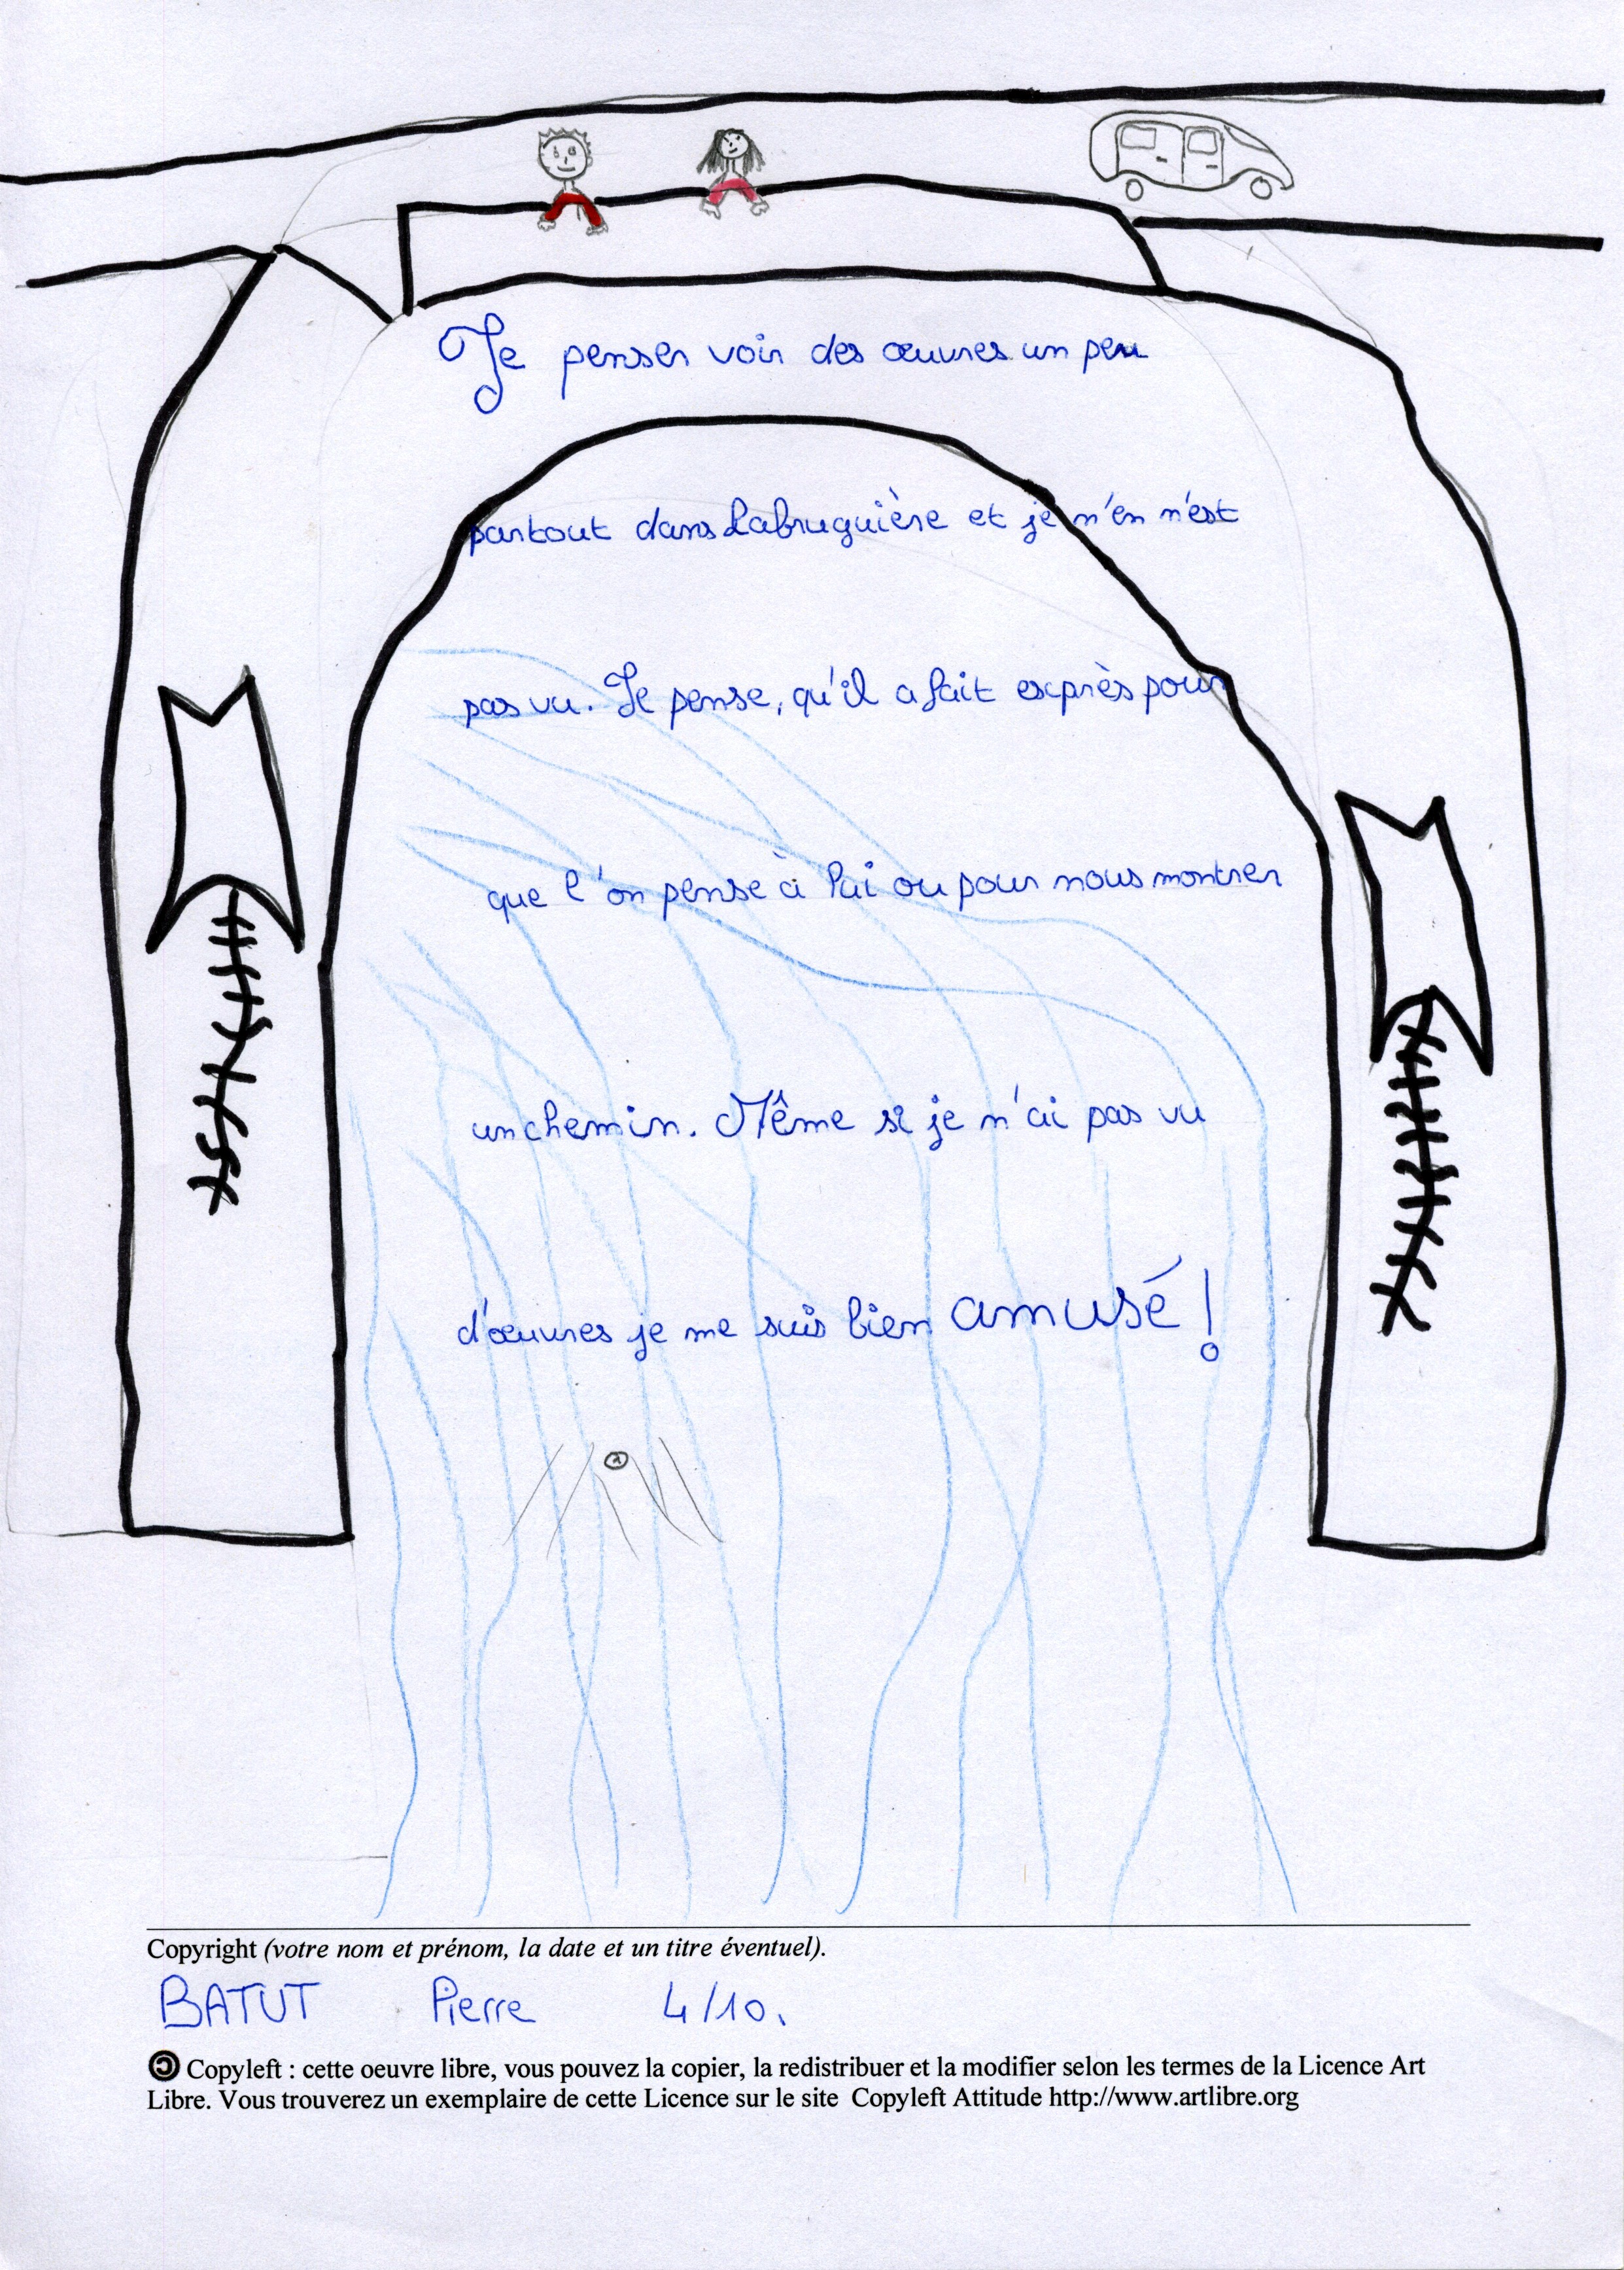 Je penser voir des œuvres un peu
partout dans Labruguière et je n'en n'est
pas vu. Je pense, qu'il a fait esxprès pour
que l'on pense à lui ou pour nous montrer
un chemin. Même si je n'ai pas vu
d'œuvres je me suis bien amusé !
Copyright (votre nom et prénom, la date et un titre éventuel).
BATUT Pierre 4/10.
Copyleft : cette oeuvre libre, vous pouvez la copier, la redistribuer et la modifier selon les termes de la Licence Art
Libre. Vous trouverez un exemplaire de cette Licence sur le site Copyleft Attitude http://www.artlibre.org